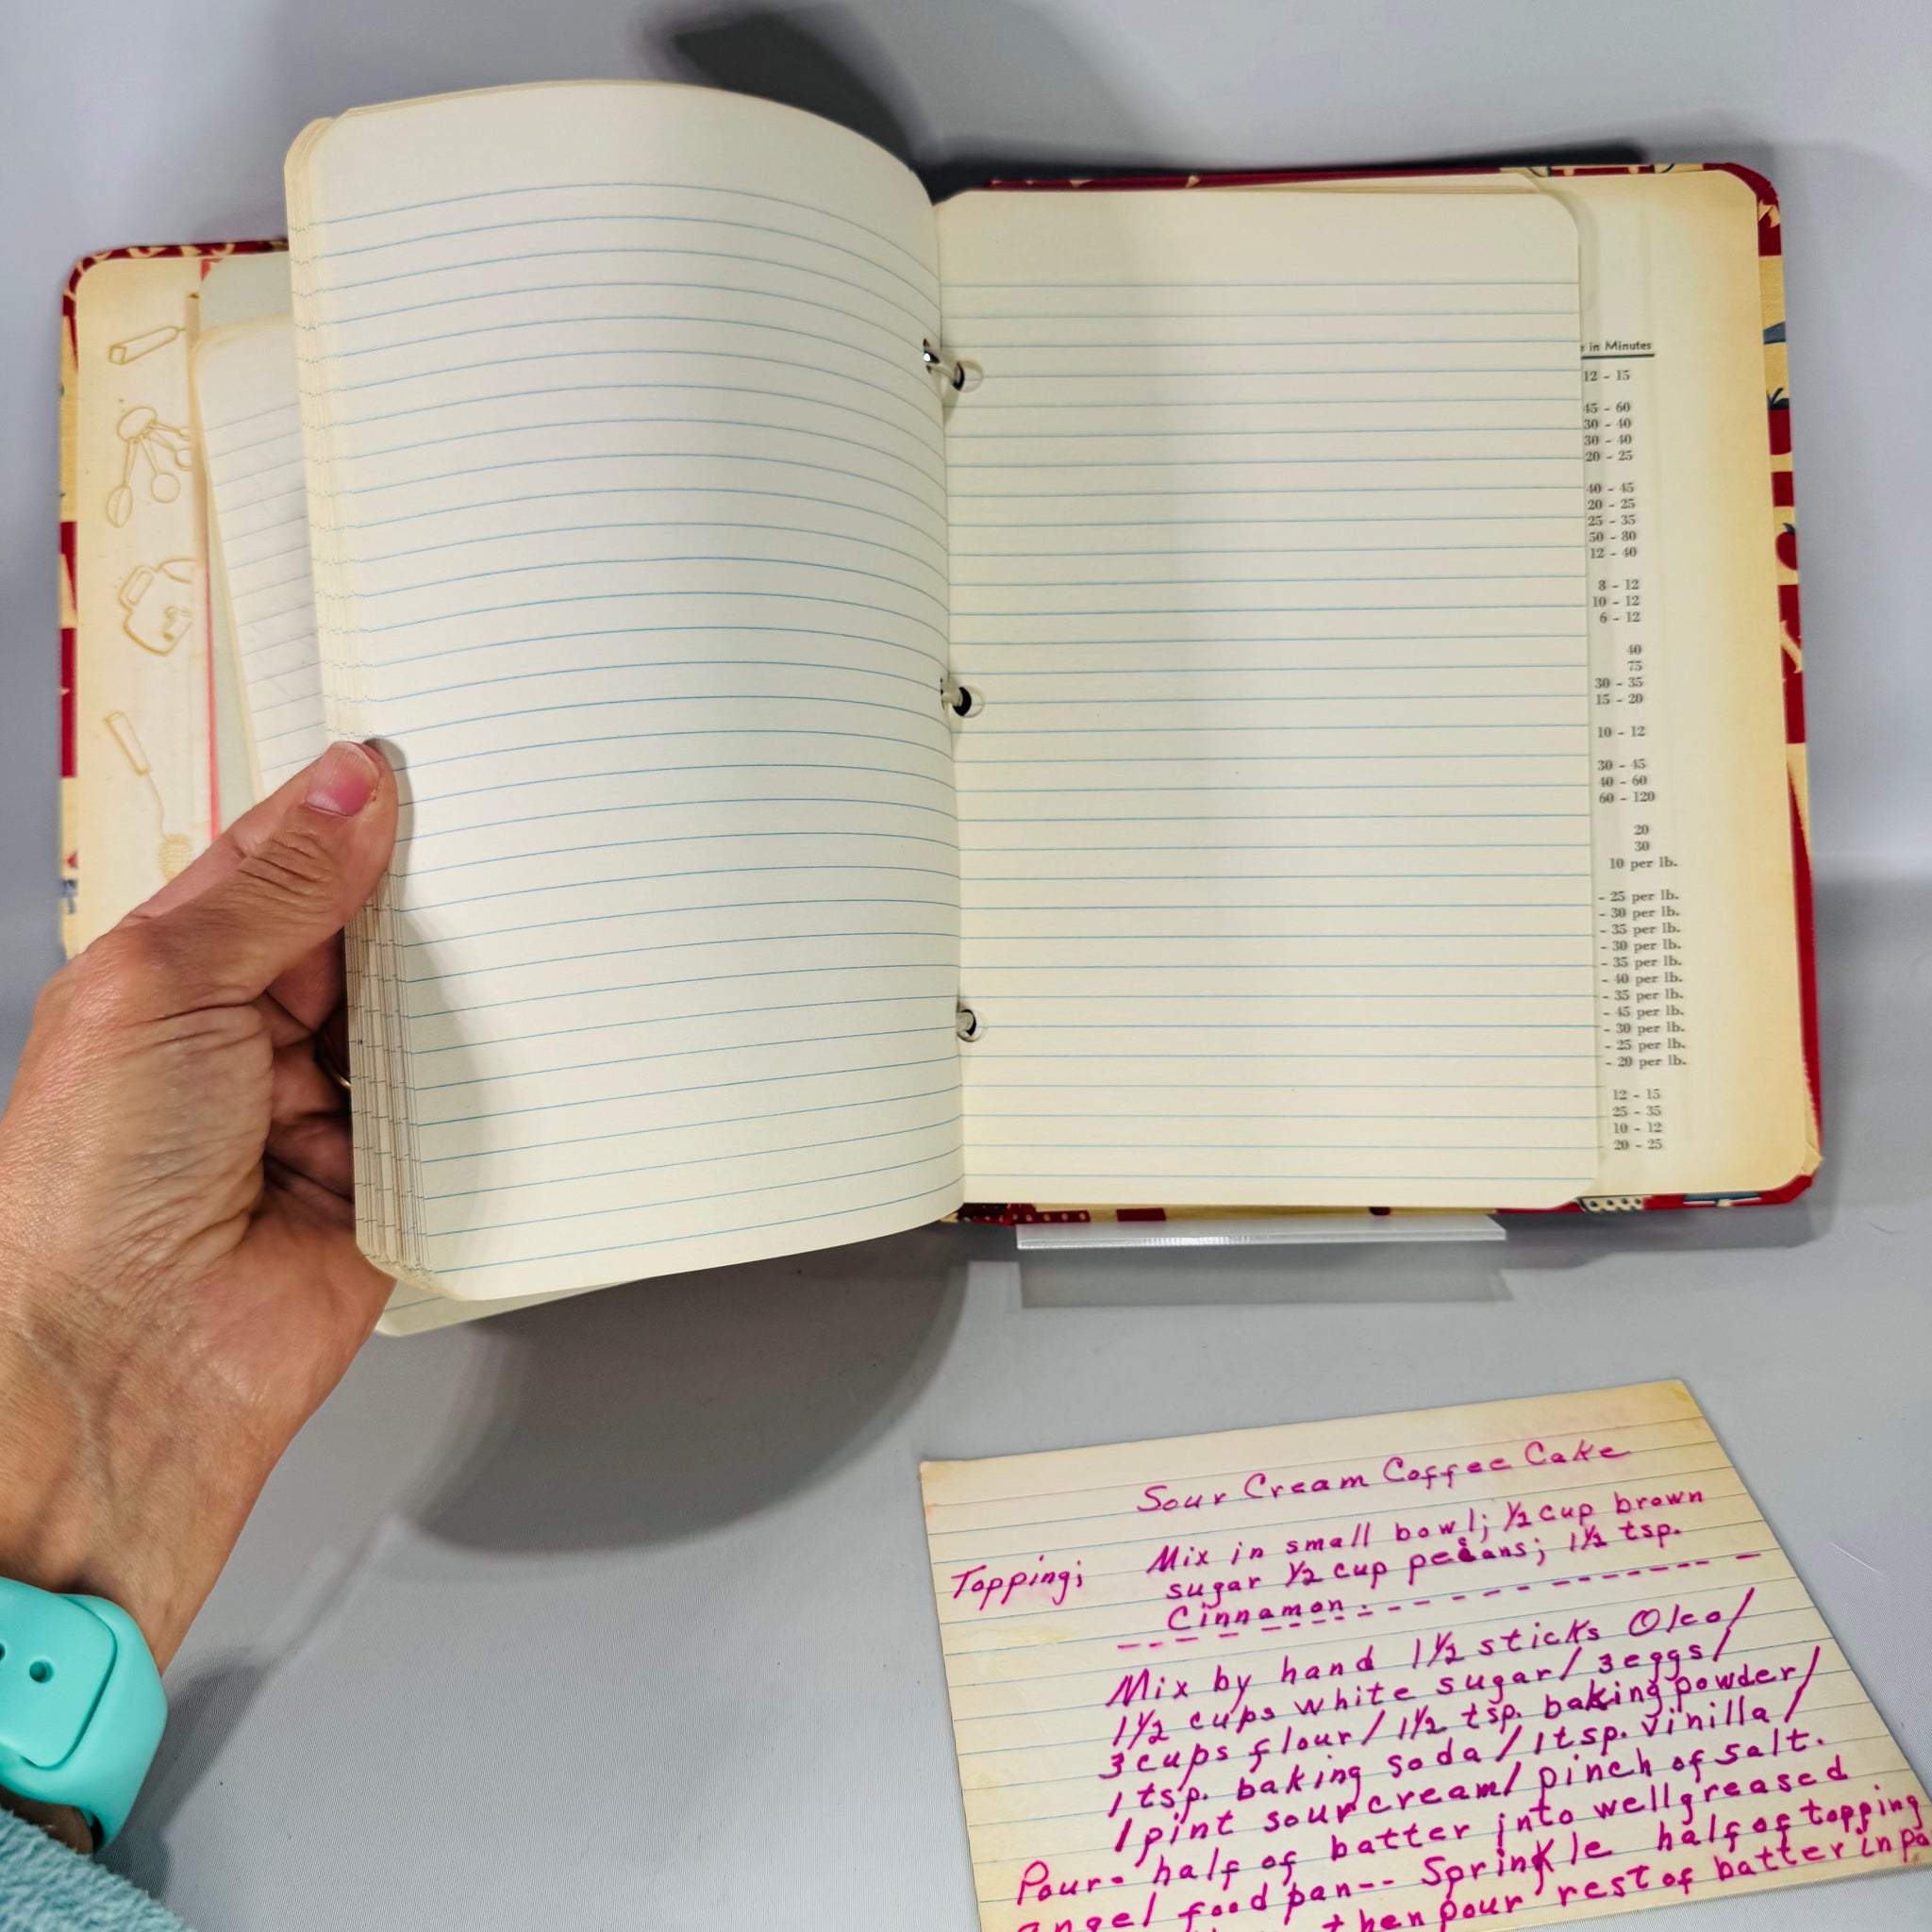 e in Minutes
12 - 15
45 - 60
30 - 40
30 - 40
20 - 25
40 - 45
20 - 25
25 - 35
50 - 80
12 - 40
8 - 12
10 - 12
6 - 12
40
75
30 - 35
15 - 20
10 - 12
30 - 45
40 - 60
60 - 120
20
30
10 per lb.
- 25 per lb.
- 30 per lb.
- 35 per lb.
- 30 per lb.
- 35 per lb.
- 40 per lb.
- 35 per lb.
- 45 per lb.
- 30 per lb.
- 25 per lb.
- 20 per lb.
12 - 15
25 - 35
10 - 12
20 - 25
Sour Cream Coffee Cake
Topping; Mix in small bowl; 1/2 cup brown
sugar 1/2 cup pecans; 1 1/2 tsp.
Cinnamon. - - - - - - - - - - -
Mix by hand 1 1/2 sticks Oleo/
1 1/2 cups white sugar/ 3 eggs/
3 cups flour/ 1 1/2 tsp. baking powder/
1 tsp. baking soda/ 1 tsp. vinilla/
1 pint sour cream/ pinch of salt.
Pour- half of batter into well greased
angel food pan-- Sprinkle half of topping
then pour rest of batter in pa